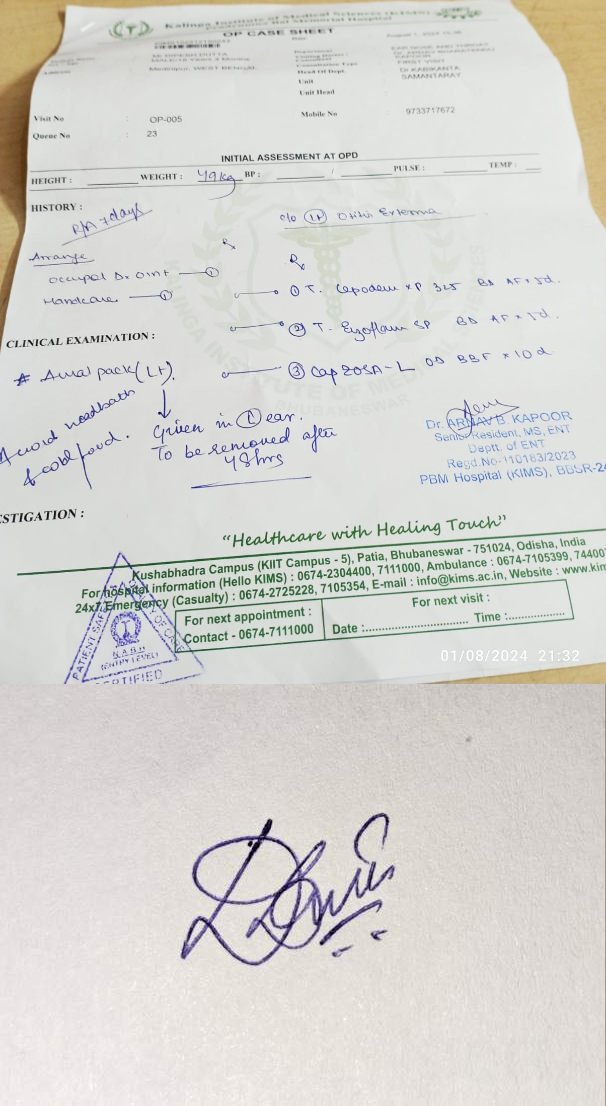 Kalinga Institute of Medical Sciences (KIMS)
Pradyumna Bal Memorial Hospital
OP CASE SHEET
August 1, 2024
Mr DIPESH DUTTA
Department
EAR NOSE AND THROAT
KAPOOR
Consultation Type
FIRST VISIT
Address
Medinipur, WEST BENGAL
Head Of Dept.
Dr.KABIKANTA
SAMANTARAY
Unit
Unit Head
Visit No : OP-005
Mobile No : 9733717672
Queue No : 23
INITIAL ASSESSMENT AT OPD
HEIGHT : WEIGHT : 49kg BP : / PULSE : TEMP :
HISTORY :
R/A 7 days
c/o Lt Otitis Externa
Arrange
Rx
Rx
Occupol Dx oint — 1
Handcare — 1
① T. Cepodem XP 325 BD AF x 5d.
CLINICAL EXAMINATION :
② T. Zyoflam SP BD AF x 5d.
* Aural pack (Lt).
③ Cap ZOSA-L OD BBF x 10d
Avoid headbath
& cold food.
Given in L ear.
To be removed after
48hrs
Dr. ARNAV B. KAPOOR
Senior Resident, MS, ENT
Deptt. of ENT
Regd.No-110163/2023
PBM Hospital (KIMS), BBSR-24
ESTIGATION :
"Healthcare with Healing Touch"
Kushabhadra Campus (KIIT Campus - 5), Patia, Bhubaneswar - 751024, Odisha, India
For hospital information (Hello KIMS) : 0674-2304400, 7111000, Ambulance : 0674-7105399, 744007
24x7 Emergency (Casualty) : 0674-2725228, 7105354, E-mail : info@kims.ac.in, Website : www.kim
For next appointment :
Contact - 0674-7111000
For next visit :
Date :.............................. Time :................
PATIENT SAFETY
QUALITY OF CARE
N.A.B.H
(ENTRY LEVEL)
CERTIFIED
01/08/2024 21:32